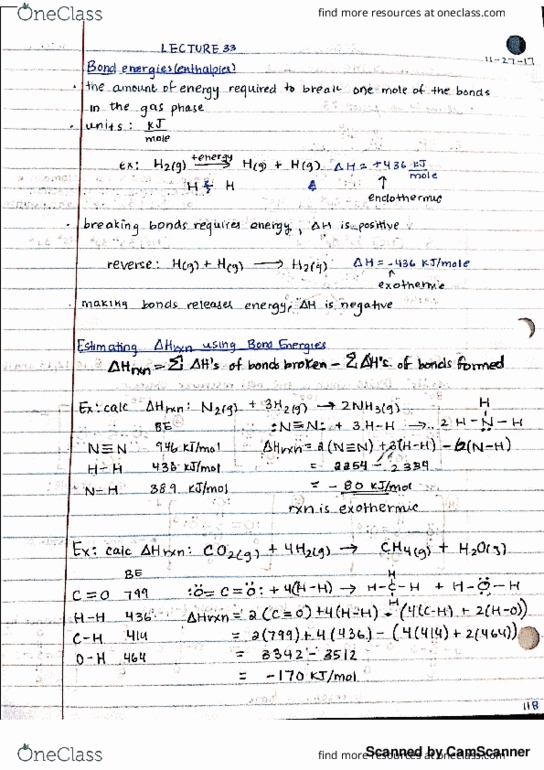 OneClass
find more resources at oneclass.com
LECTURE 33
11-27-17
Bond energies (enthalpies)
· the amount of energy required to break one mole of the bonds
in the gas phase
· units: kJ/mole
ex: H₂(g) +energy→ H(g) + H(g) ΔH = +436 kJ/mole
H H
↑
endothermic
· breaking bonds requires energy, ΔH is positive
reverse: H(g) + H(g) → H₂(g) ΔH = -436 kJ/mole
↑
exothermic
· making bonds releases energy, ΔH is negative
Estimating ΔHrxn using Bond Energies
ΔHrxn = Σ ΔH's of bonds broken - Σ ΔH's of bonds formed
Ex: calc ΔHrxn: N₂(g) + 3H₂(g) → 2NH₃(g)
H
BE :N≡N: + 3 H-H → 2 H-N-H
N≡N 946 kJ/mol ΔHrxn = (N≡N) + 3(H-H) - 6(N-H)
H-H 436 kJ/mol = 2254 - 2334
N-H 389 kJ/mol = -80 kJ/mol
rxn is exothermic
Ex: calc ΔHrxn: CO₂(g) + 4H₂(g) → CH₄(g) + H₂O(g)
BE
H
C=O 799 :Ö=C=Ö: + 4(H-H) → H-C-H + H-Ö-H
H
H-H 436 ΔHrxn = 2(C=O) + 4(H-H) - (4(C-H) + 2(H-O))
C-H 414 = 2(799) + 4(436) - (4(414) + 2(464))
O-H 464 = 3342 - 3512
= -170 kJ/mol
118
OneClass
find more resources at oneclass.com
Scanned by CamScanner